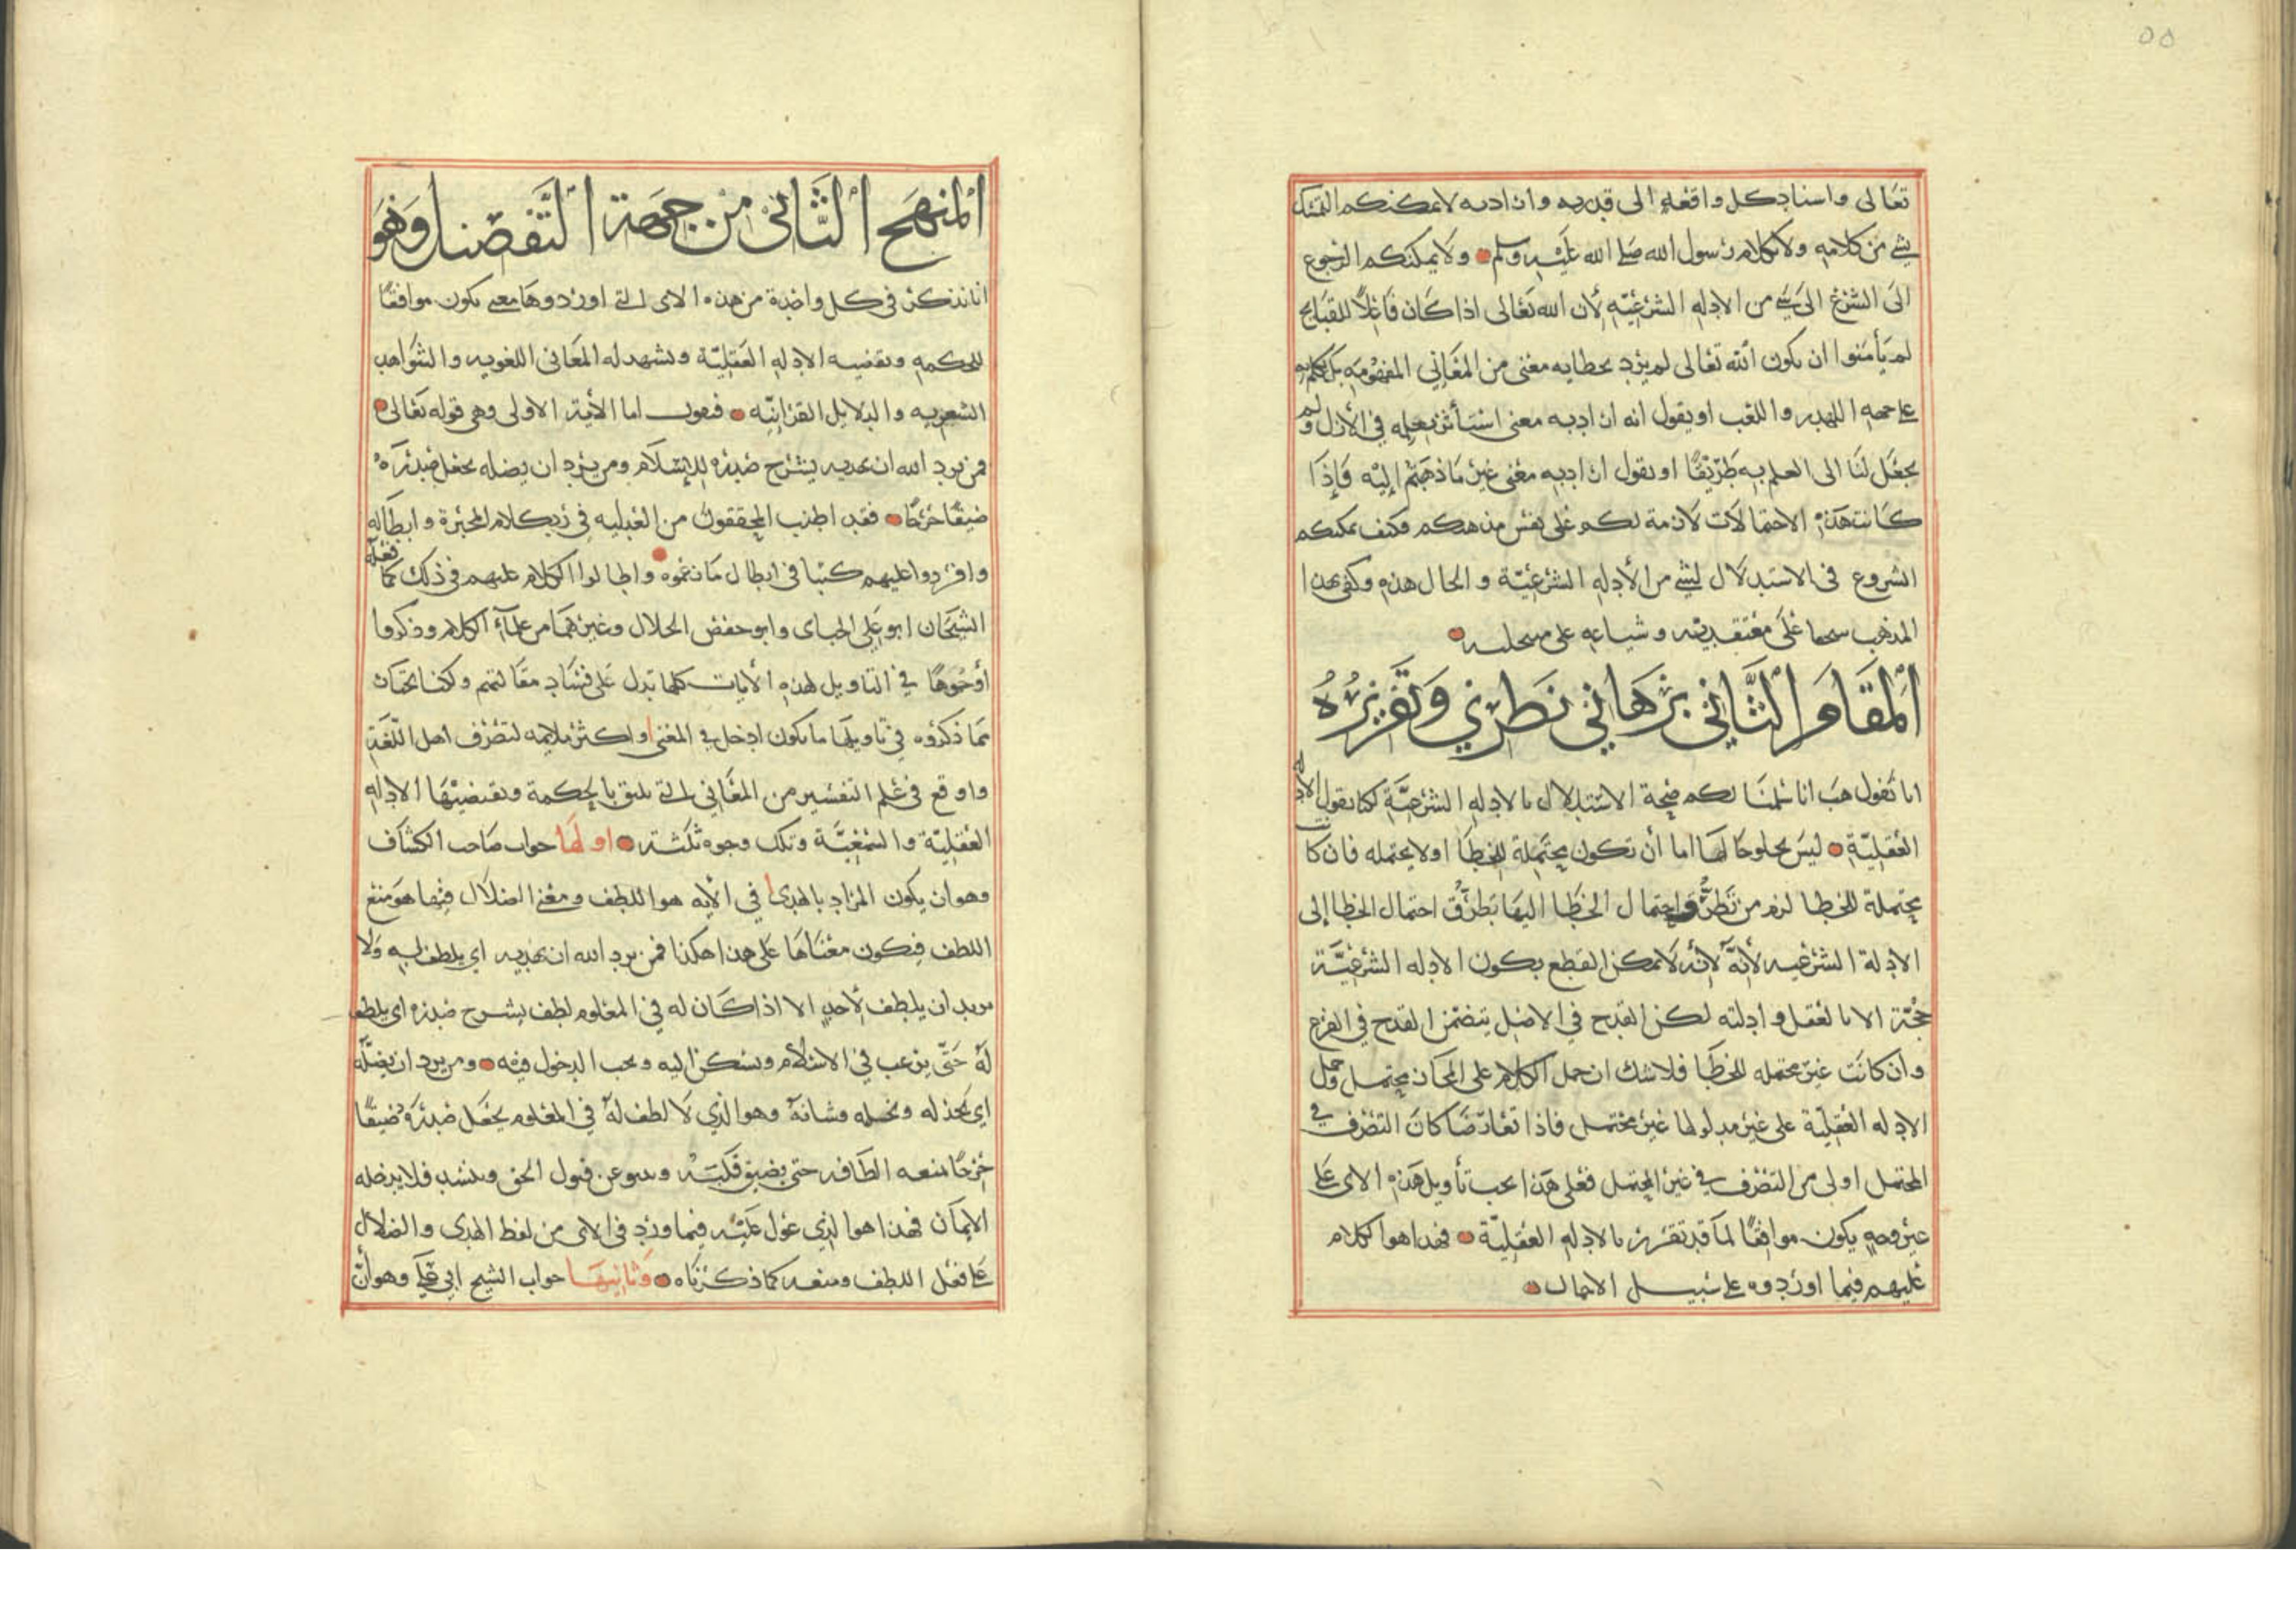 ٥٥
تعالى واسناد كل واقعه الى قدرته وارادته لا يمكنكم التمسك
بشي من كلامه ولا بكلام رسول الله صلى الله عليه وسلم ولا يمكنكم الرجوع
الى الشرع الى شي من الادله الشرعيّه لأن الله تعالى اذا كان فاعلًا للقبايح
لم يأمنوا ان يكون الله تعالى لم يرد بخطابه معنى من المعاني المفهومه بل تكلم به
على جهه الهذر واللعب او يقول انه اراد به معنى استأثر بعلمه في الأزل ولم
يجعل لنا الى العلم به طريقًا او يقول اراد به معنى غير ما ذهبتم إليه فإذا
كانت هذه الاحتمالات لازمة لكم على نفس مذهبكم فكيف يمكنكم
الشروع في الاستدلال بشي من الأدله الشرعيّة والحال هذه وكفى بهذا
المذهب سخفا على معتقديه وشناعه على منتحليه
المقام الثاني برهاني نظري وتقريره
انا نقول هب انا سلمنا لكم صحة الاستدلال بالادله الشرعيّة لكنا نقول الادله
العقليّة ليس يخلو حالها اما أن تكون محتملة للخطا او لا يحتمله فان كانت
محتملة للخطا لزم من تطرّق احتمال الخطا اليها تطرّق احتمال الخطا إلى
الادلة الشرعيه لأنّه لا يمكن القطع بكون الادله الشرعيّة
حجّة الا بالعقل وادلته لكن القدح في الاصل يتضمن القدح في الفرع
وان كانت غير محتمله للخطا فلا شك ان حمل الكلام على المجاز محتمل وحمل
الادله العقليّة على غير مدلولها غير محتمل فاذا تعارضا كان التصرف في
المحتمل اولى من التصرف في غير المحتمل فعلى هذا يجب تأويل هذه الاى على
وجه يكون موافقًا لما قد تقرر بالادله العقليّة فهذا هو الكلام
عليهم فيما اوردوه على سبيل الاجمال
المنهج الثاني من جهة التفصيل وهو
انا نذكر في كل واحدة من هذه الاى التى اوردوها معنى يكون موافقًا
للحكمه وتقتضيه الادله العقليّة وتشهد له المعاني اللغويه والشواهد
الشعريه والدلايل القرانيّه فنقول اما الأية الاولى وهي قوله تعالى
فمن يرد الله ان يهديه يشرح صدره للإسلام ومن يرد ان يضله يجعل صدره
ضيقًا حرجًا فقد اطنب المحققون من العدليه في رد كلام المجبرة وابطاله
وافردوا عليهم كتبا في ابطال ما زعموه واطالوا الكلام عليهم في ذلك كما فعله
الشيخان ابو علي الجباى وابو حفص الخلال وغيرهما من علمآء الكلام وذكروا
أوجُهًا في التاويل لهذه الأيات كلها تدل على فساد مقالتهم ولكنا نختار
مما ذكروه في تاويلها ما يكون ادخل في المعنى او اكثر ملايمه لتصرف اهل اللّغة
واوقع في علم التفسير من المعاني التى تليق بالحكمة وتقتضيها الادله
العقليّة والسمعيّة وتلك وجوه ثلثة اولها جواب صاحب الكشاف
وهو ان يكون المراد بالهدى في الأيه هو اللطف ومعنى الضلال فيها هو منع
اللطف فيكون معناها على هذا هكذا فمن يرد الله ان يهديه اي يلطف به ولا
يريد ان يلطف لأحدٍ الا اذا كان له في المعلوم لطف يشرح صدره اى يلطف
له حتّى يرغب في الاسلام ويسكن اليه ويحب الدخول فيه ومن يرد ان يضلّه
اي يخذله ويخليه وشانه وهو الذي لا لطف له في المعلوم يجعل صدره ضيقًا
حرجًا بمنعه الطافه حتى يضيق قلبه وينبو عن قبول الحق وينسد فلا يدخله
الإيمان فهذا هو الذي عوّل عليه فيما ورد في الاى من لفظ الهدى والضلال
على فعل اللطف ومنعه كما ذكرناه وثانيها جواب الشيخ ابي علي وهو أن